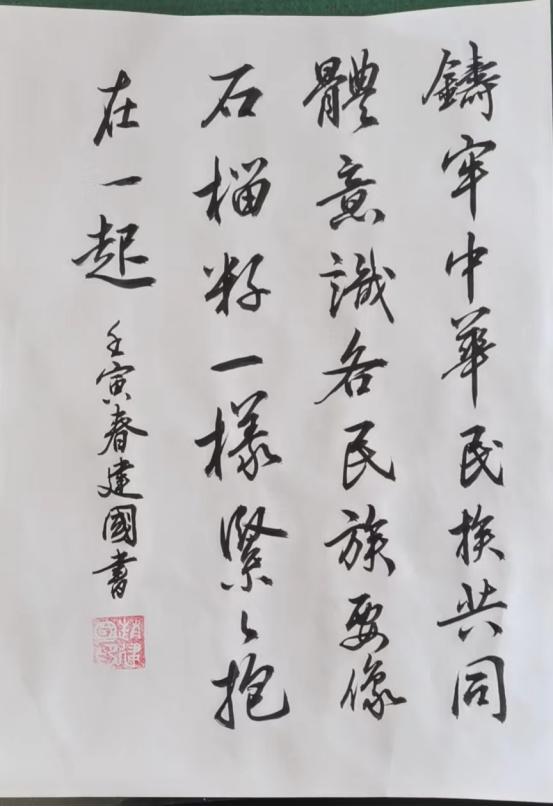 鑄牢中華民族共同
體意識各民族要像
石榴籽一樣緊々抱
在一起
壬寅春建國書